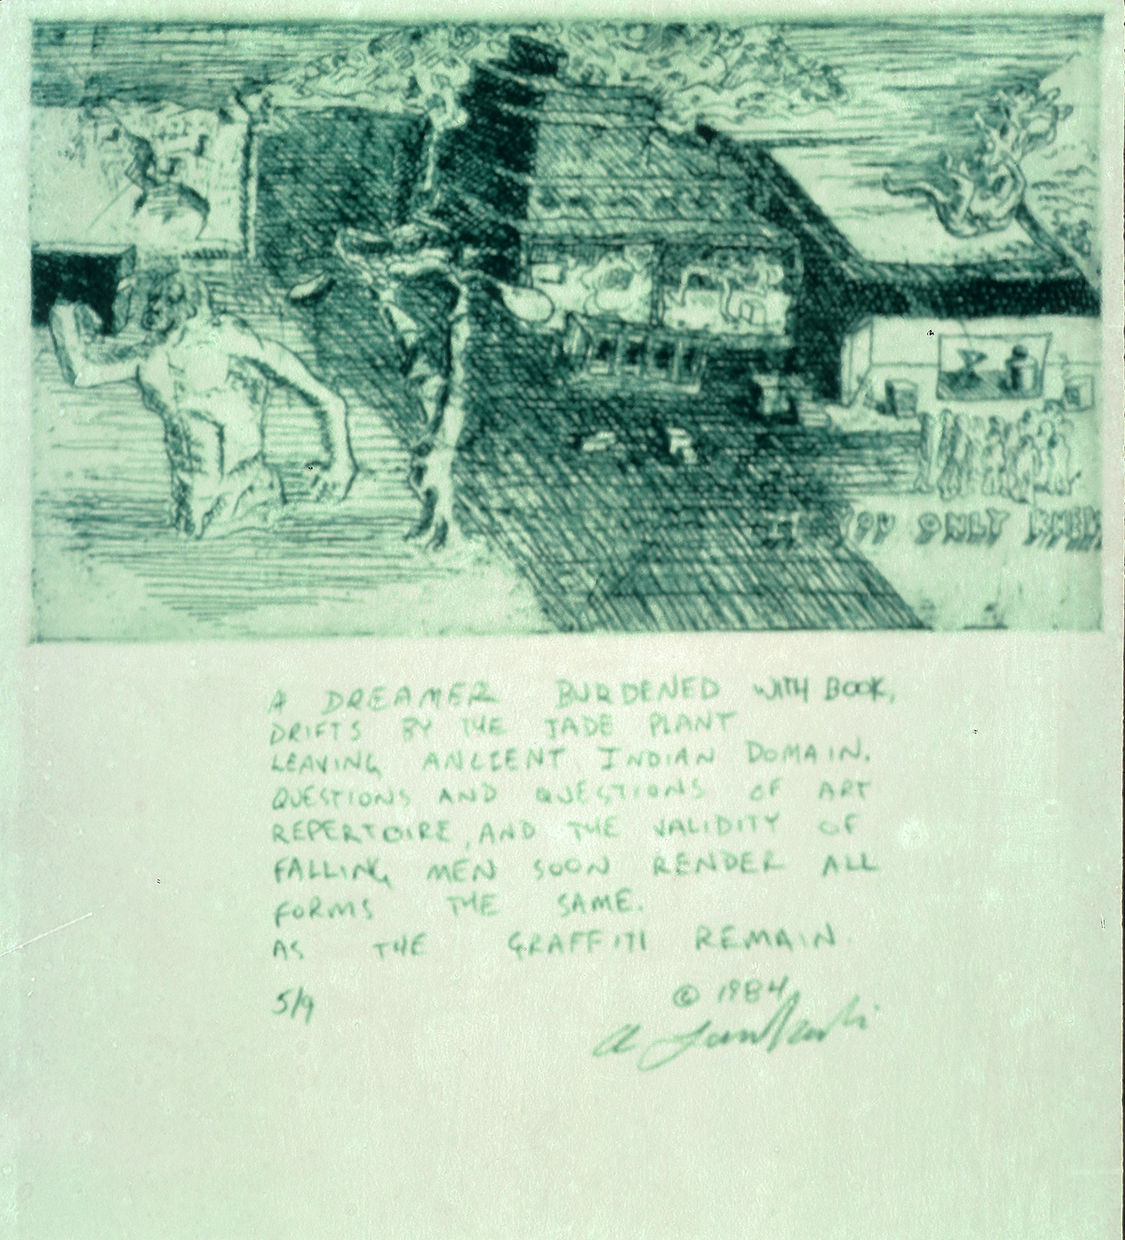 YOU ONLY
A DREAMER BURDENED WITH BOOK,
DRIFTS BY THE JADE PLANT
LEAVING ANCIENT INDIAN DOMAIN.
QUESTIONS AND QUESTIONS OF ART
REPERTOIRE, AND THE VALIDITY OF
FALLING MEN SOON RENDER ALL
FORMS THE SAME.
AS THE GRAFFITI REMAIN
5/9
© 1984